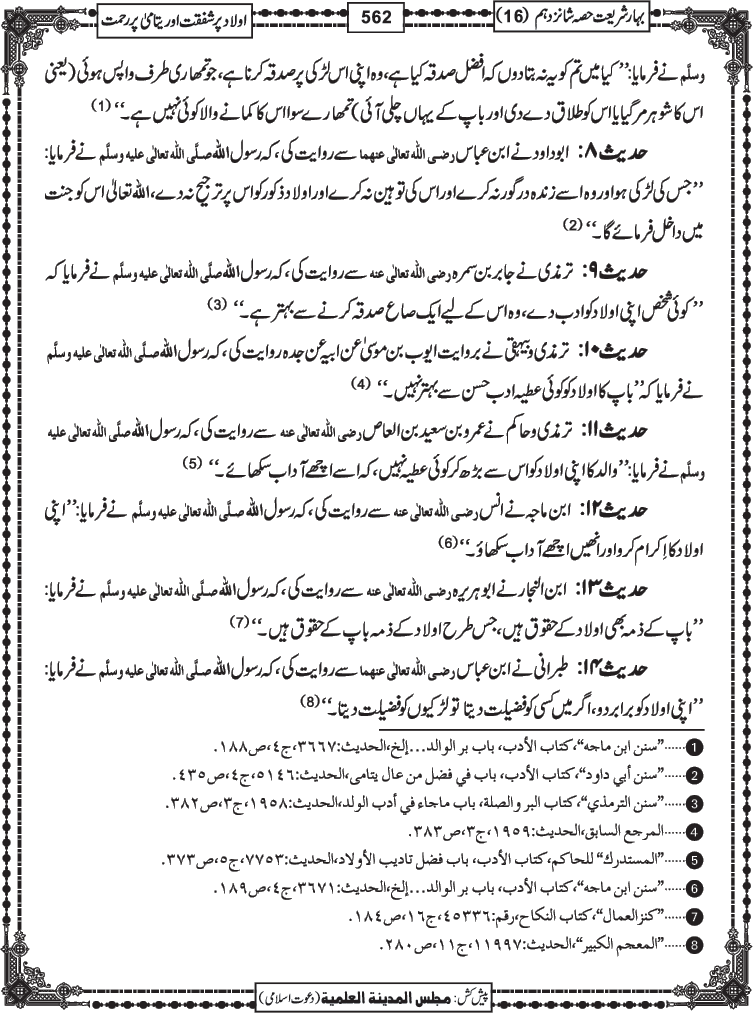 بہارِ شریعت حصہ شانزدہم (16)
562
اولاد پر شفقت اور یتامیٰ پر رحمت
وسلَّم نے فرمایا: ’’کیا میں تم کو یہ نہ بتادوں کہ افضل صدقہ کیا ہے، وہ اپنی اس لڑکی پر صدقہ کرنا ہے، جو تمھاری طرف واپس ہوئی (یعنی
اس کا شوہر مر گیا یا اس کو طلاق دے دی اور باپ کے یہاں چلی آئی) تمھارے سوا اس کا کمانے والا کوئی نہیں ہے۔‘‘ (1)
حدیث ۸: ابو داود نے ابن عباس رضی اللہ تعالٰی عنھما سے روایت کی، کہ رسول اللہ صلَّی اللہ تعالٰی علیہ وسلَّم نے فرمایا:
’’جس کی لڑکی ہو اور وہ اسے زندہ در گور نہ کرے اور اس کی توہین نہ کرے اور اولاد ذکور کو اس پر ترجیح نہ دے، اللہ تعالیٰ اس کو جنت
میں داخل فرمائے گا۔‘‘ (2)
حدیث ۹: ترمذی نے جابر بن سمرہ رضی اللہ تعالٰی عنہ سے روایت کی، کہ رسول اللہ صلَّی اللہ تعالٰی علیہ وسلَّم نے فرمایا کہ
’’کوئی شخص اپنی اولاد کو ادب دے، وہ اس کے لیے ایک صاع صدقہ کرنے سے بہتر ہے۔‘‘ (3)
حدیث ۱۰: ترمذی و بیہقی نے بروایت ایوب بن موسیٰ عن ابیہ عن جدہ روایت کی، کہ رسول اللہ صلَّی اللہ تعالٰی علیہ وسلَّم
نے فرمایا کہ ’’باپ کا اولاد کو کوئی عطیہ ادب حسن سے بہتر نہیں۔‘‘ (4)
حدیث ۱۱: ترمذی و حاکم نے عمرو بن سعید بن العاص رضی اللہ تعالٰی عنہ سے روایت کی، کہ رسول اللہ صلَّی اللہ تعالٰی علیہ
وسلَّم نے فرمایا: ’’والد کا اپنی اولاد کو اس سے بڑھ کر کوئی عطیہ نہیں، کہ اسے اچھے آداب سکھائے۔‘‘ (5)
حدیث ۱۲: ابن ماجہ نے انس رضی اللہ تعالٰی عنہ سے روایت کی، کہ رسول اللہ صلَّی اللہ تعالٰی علیہ وسلَّم نے فرمایا: ’’اپنی
اولاد کا اِکرام کرو اور انھیں اچھے آداب سکھاؤ۔‘‘ (6)
حدیث ۱۳: ابن النجار نے ابو ہریرہ رضی اللہ تعالٰی عنہ سے روایت کی، کہ رسول اللہ صلَّی اللہ تعالٰی علیہ وسلَّم نے فرمایا:
’’باپ کے ذمہ بھی اولاد کے حقوق ہیں، جس طرح اولاد کے ذمہ باپ کے حقوق ہیں۔‘‘ (7)
حدیث ۱۴: طبرانی نے ابن عباس رضی اللہ تعالٰی عنھما سے روایت کی، کہ رسول اللہ صلَّی اللہ تعالٰی علیہ وسلَّم نے فرمایا:
’’اپنی اولاد کو برابر دو، اگر میں کسی کو فضیلت دیتا تو لڑکیوں کو فضیلت دیتا۔‘‘ (8)
1 ......”سنن ابن ماجه“، كتاب الأدب، باب بر الوالد...إلخ، الحديث: ٣٦٦٧، ج٤، ص١٨٨.
2 ......”سنن أبي داود“، كتاب الأدب، باب في فضل من عال يتامى، الحديث: ٥١٤٦، ج٤، ص٤٣٥.
3 ......”سنن الترمذي“، كتاب البر والصلة، باب ماجاء في أدب الولد، الحديث: ١٩٥٨، ج٣، ص٣٨٢.
4 ......المرجع السابق، الحديث: ١٩٥٩، ج٣، ص٣٨٣.
5 ......”المستدرك“ للحاكم، كتاب الأدب، باب فضل تاديب الأولاد، الحديث: ٧٧٥٣، ج٥، ص٣٧٣.
6 ......”سنن ابن ماجه“، كتاب الأدب، باب بر الوالد...إلخ، الحديث: ٣٦٧١، ج٤، ص١٨٩.
7 ......”كنز العمال“، كتاب النكاح، رقم: ٤٥٣٣٦، ج١٦، ص١٨٤.
8 ......”المعجم الكبير“، الحديث: ١١٩٩٧، ج١١، ص٢٨٠.
پیش کش: مجلس المدينة العلمية (دعوت اسلامی)